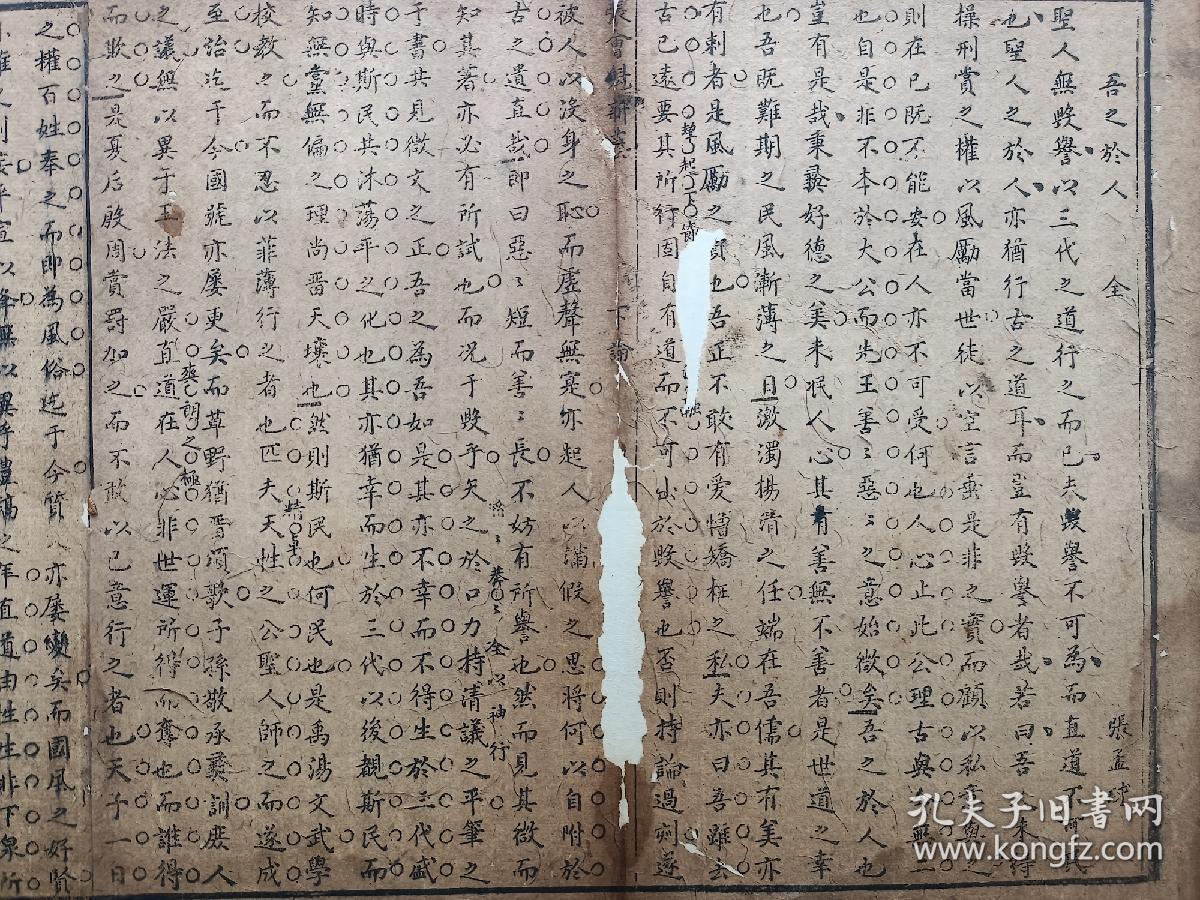 吾之於人 全 張孟
聖人無毀譽以三代之道行之而已夫毀譽不可為而直道不可
也聖人之於人亦猶行古之道耳而豈有毀譽者哉若曰吾
操刑賞之權以風勵當世徒以空言垂是非之實而顧以私
則在已既不能安在人亦不可受何也人心止此公理古與無二
也自是非不本於大公而先王善〻惡〻之意始微矣吾之於人也
豈有是哉秉彝好德之美未泯人心其有善無不善者是世道之幸
也吾既難期之民風漸薄之日激濁揚清之任端在吾儒其有美亦
有刺者是風勵之 也吾正不敢有愛憎矯枉之私夫亦曰善雖去
古已遠要其所行固自有道而不可出於毀譽也否則持論過刻遂
張會魁新藁 下論
彼人以沒身之恥而虛聲無寔亦起人以滿假之思將何以自附於
古之遺直哉即曰惡〻短而善〻長不妨有所譽也然而見其微而
知其著亦必有所試也而況于毀乎矢之於口力持清議之平筆之
于書共見微文之正吾之為吾如是其亦不幸而不得生於三代盛
時與斯民共沐蕩平之化也其亦猶幸而生於三代以後親斯民而
知無黨無偏之理尚晋天壤也然則斯民也何民也是禹湯文武學
校教之而不忍以菲薄行之者也匹夫天性之公聖人師之而遂成
至治迄于今國號亦屡更矣而草野猶晋頌歌子孫敬承彝訓庶人
之議無以異于王法之嚴直道在人心非世運所得而奪也而誰得
而欺之是夏后殷周賞罰加之而不敢以已意行之者也天子一日
之權百姓奉之而即為風俗迄于今質 亦屡變矣而國風之好賢
直道由性生非下泉所
孔夫子旧書网
www.kongfz.com